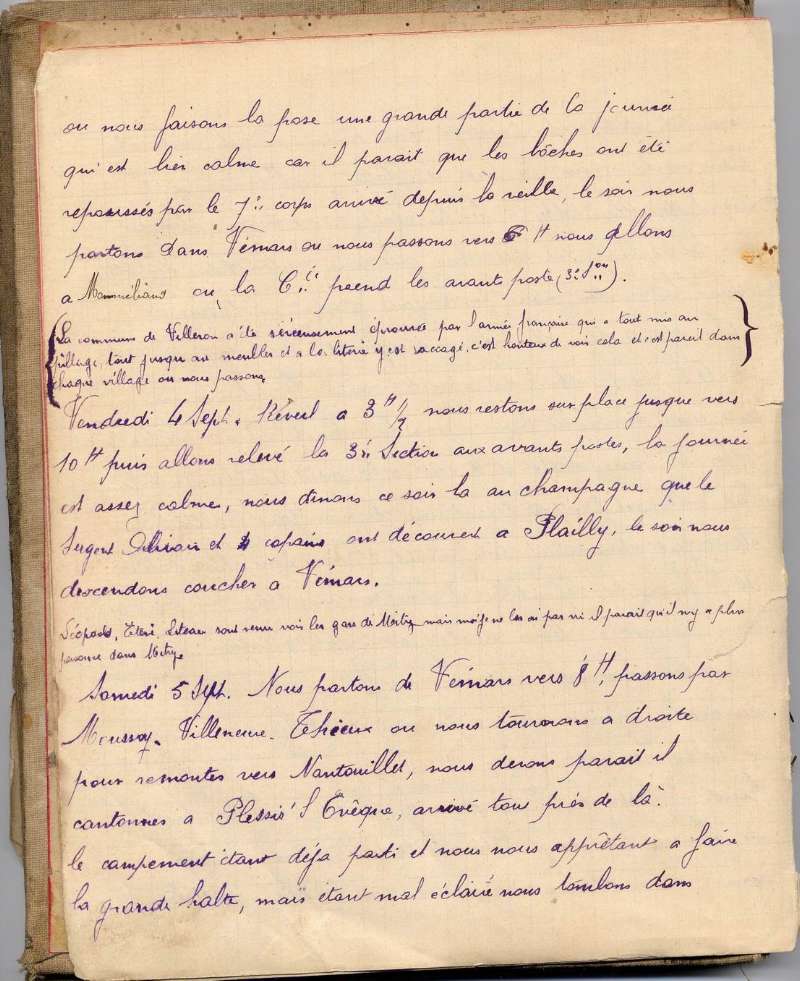 ou nous faisons la pose une grande partie de la journée
qui est bien calme car il parait que les bôches ont été
repoussés par le 7e corps arrivé depuis la veille, le soir nous
partons dans Vémars ou nous passons vers 6 H nous allons
a ou la Cie prend les avants poste (3e Son).
La commune de Villeron a été sérieusement éprouvée par l'armée française qui a tout mis au
pillage, tout jusqu'au meubles et a la literie y est saccagé, c'est honteux de voir cela et c'est pareil dans
chaque village ou nous passons
Vendredi 4 Sept. Réveil a 3 H 1/2 nous restons sur place jusque vers
10 H puis allons relevé la 3e Section aux avants postes, la journée
est assez calme, nous dinons ce soir la au champagne que le
Sergent et copains ont découvert a Plailly, le soir nous
descendons coucher a Vémars.
sont venus voir les gars de Mitry mais moi je ne les ai pas vu il parait qu'il n'y a plus
personne dans Mitry
Samedi 5 Sept. Nous partons de Vémars vers 8 H, passons par
Moussy. Villeneuve. Thieux ou nous tournons a droite
pour remonter vers Nantouillet, nous devons parait il
cantonner a Plessis l'Evêque, arrivé tout près de là.
le campement étant déja parti et nous nous apprêtant a faire
la grande halte, mais étant mal éclairé nous tombons dans